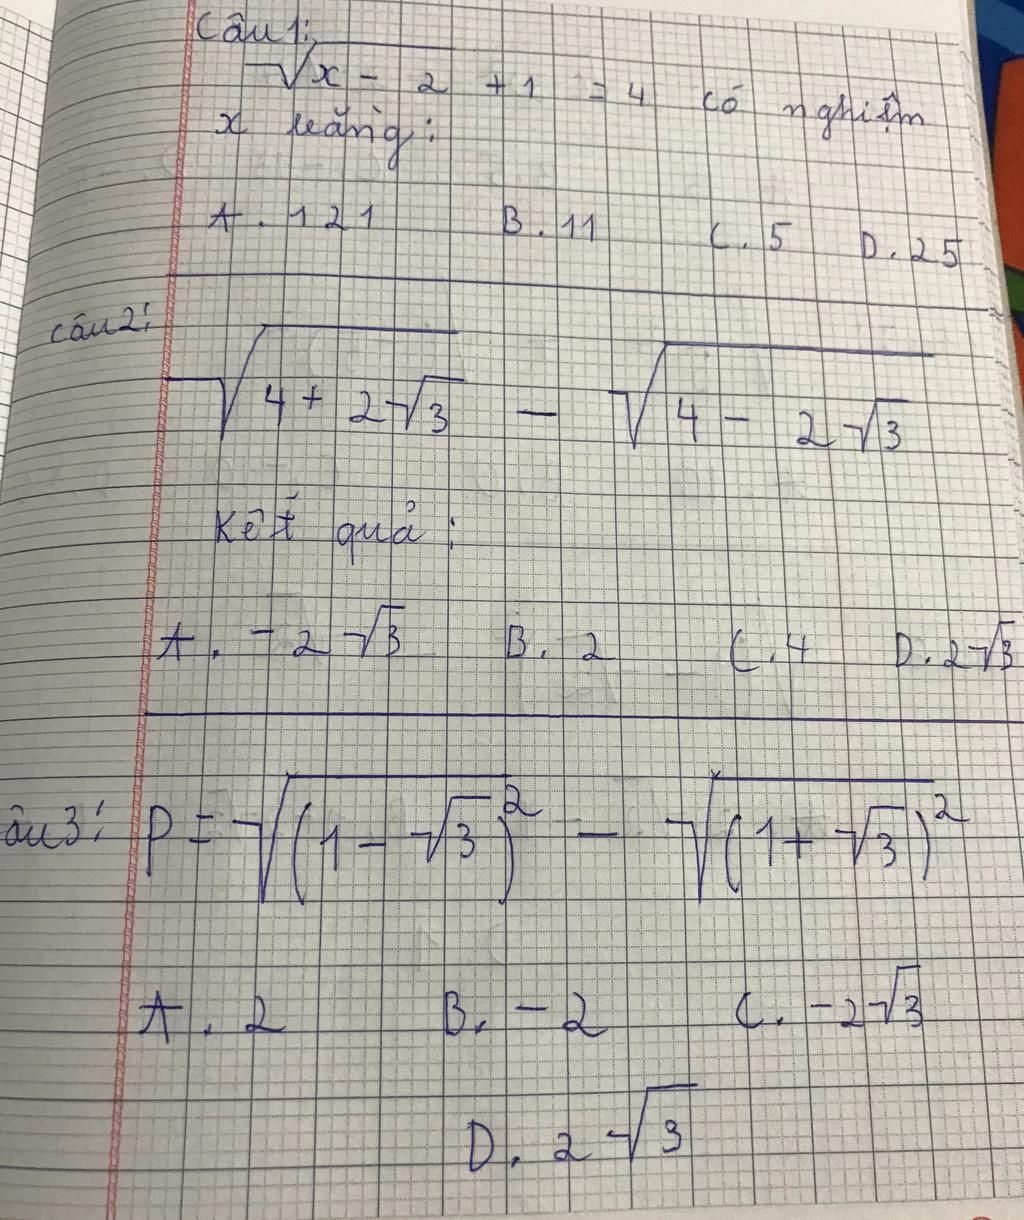 Câu 1:
√(x - 2) + 1 = 4 có nghiệm
x bằng:
A. 121 B. 11 C. 5 D. 25
Câu 2:
√(4 + 2√3) - √(4 - 2√3)
Kết quả:
A. -2√3 B. 2 C. 4 D. 2√3
âu 3: P = √((1 - √3)²) - √((1 + √3)²)
A. 2 B. -2 C. -2√3
D. 2√3